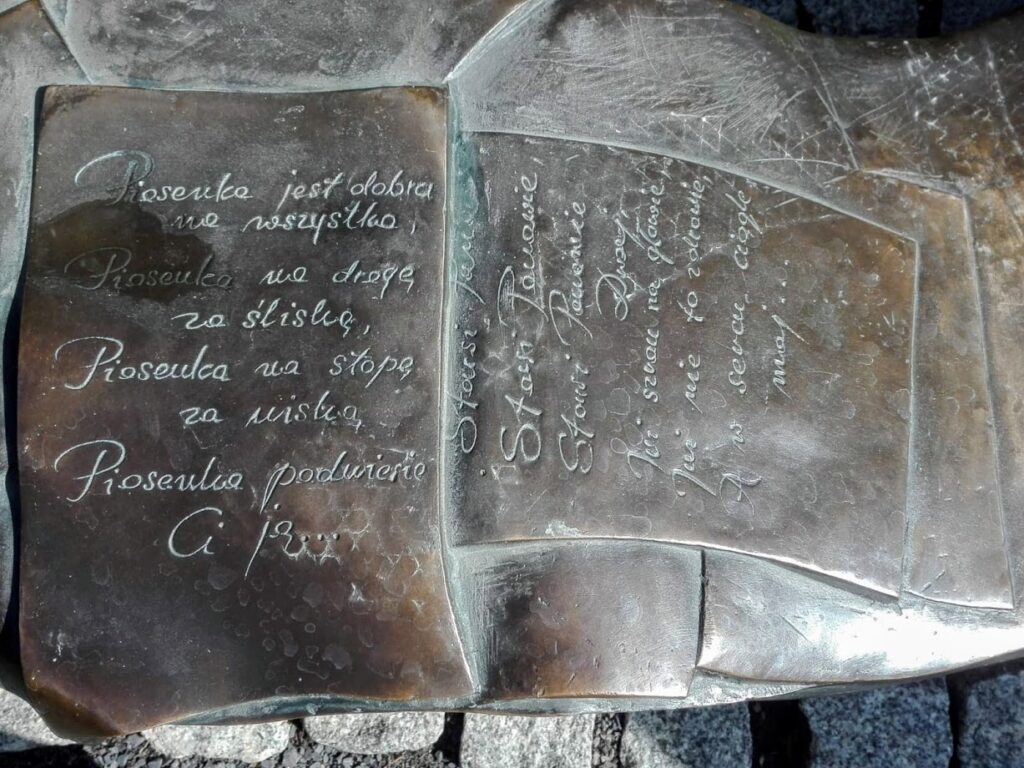 Piosenka jest dobra
na wszystko,
Piosenka na drogę
za śliską,
Piosenka na stopę
za niską
Piosenka podniesie
Ci ją...
Starsi
Starsi Panowie,
Starsi Panowie
Dwaj
Już szron na głowie,
Już nie to zdrowie,
A w sercu ciągle
maj...